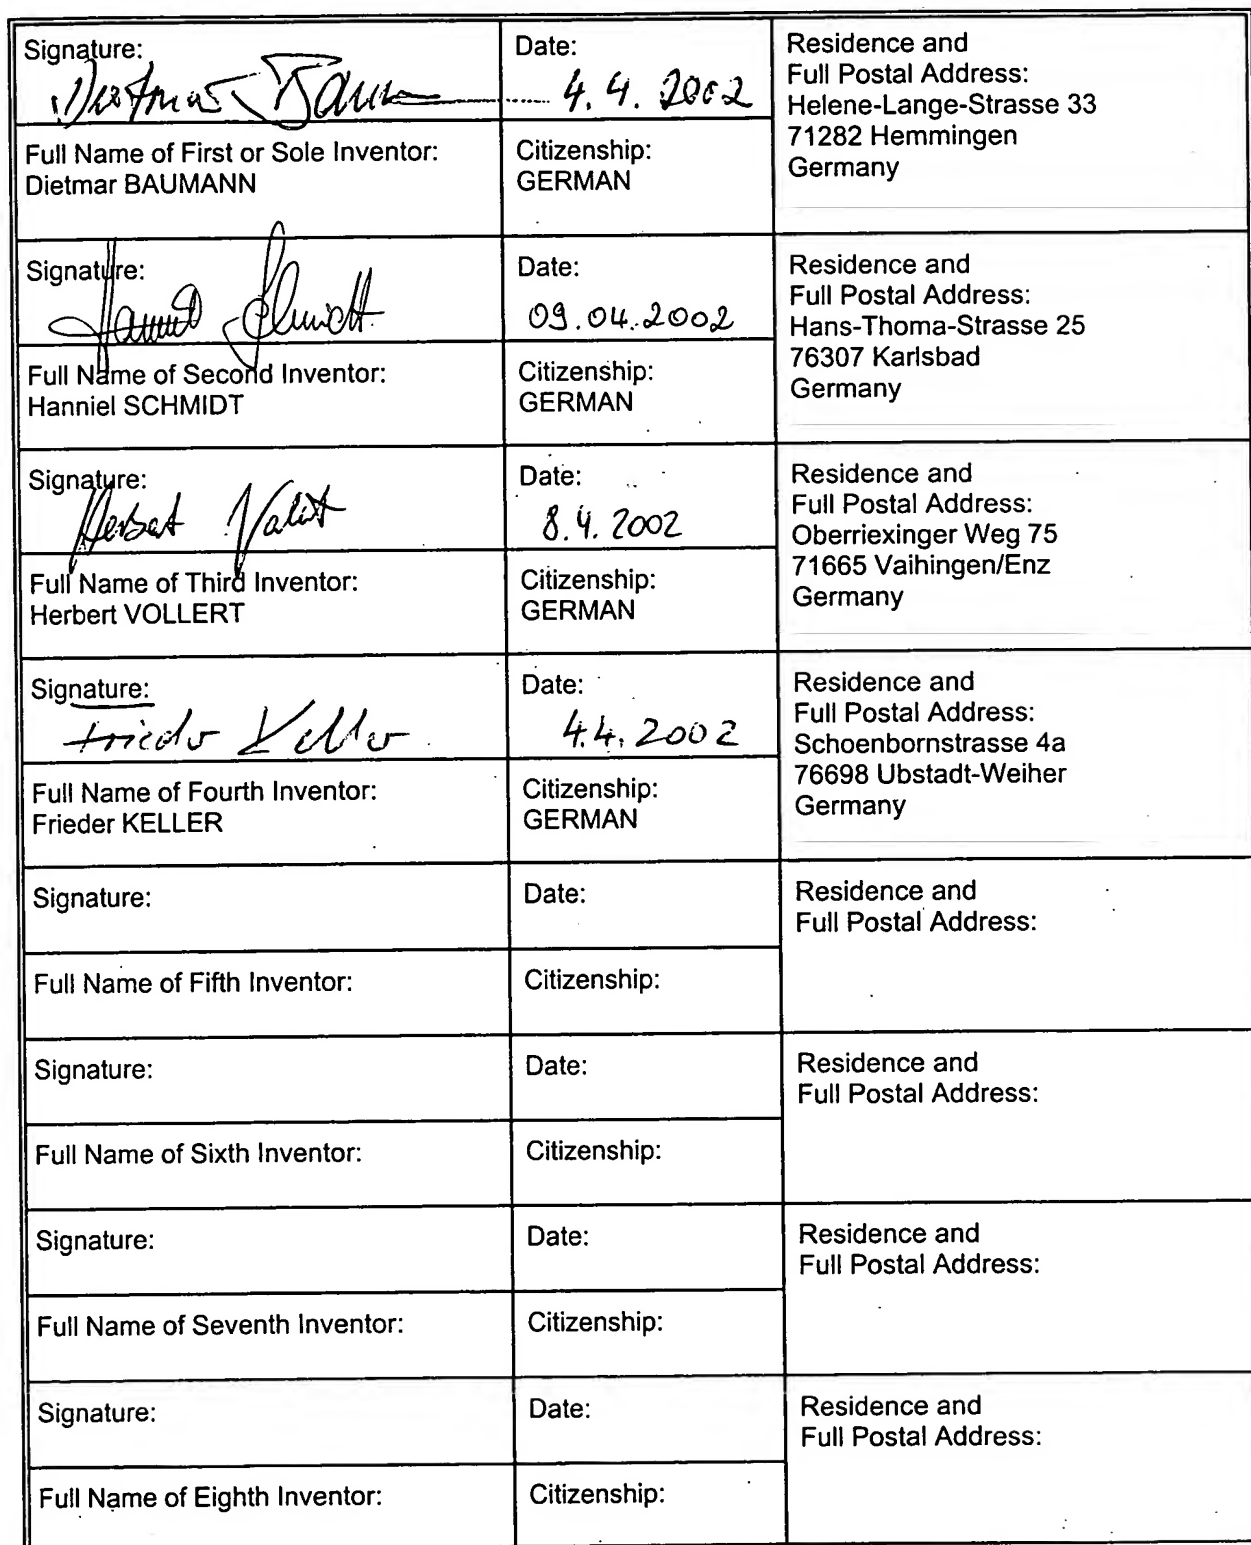 Signature:
Dietmar Baumann
Date:
4.4.2002
Residence and
Full Postal Address:
Helene-Lange-Strasse 33
71282 Hemmingen
Germany
Full Name of First or Sole Inventor:
Dietmar BAUMANN
Citizenship:
GERMAN
Signature:
Hanniel Schmidt
Date:
09.04.2002
Residence and
Full Postal Address:
Hans-Thoma-Strasse 25
76307 Karlsbad
Germany
Full Name of Second Inventor:
Hanniel SCHMIDT
Citizenship:
GERMAN
Signature:
Herbert Vollert
Date:
8.4.2002
Residence and
Full Postal Address:
Oberriexinger Weg 75
71665 Vaihingen/Enz
Germany
Full Name of Third Inventor:
Herbert VOLLERT
Citizenship:
GERMAN
Signature:
Frieder Keller
Date:
4.4.2002
Residence and
Full Postal Address:
Schoenbornstrasse 4a
76698 Ubstadt-Weiher
Germany
Full Name of Fourth Inventor:
Frieder KELLER
Citizenship:
GERMAN
Signature:
Date:
Residence and
Full Postal Address:
Full Name of Fifth Inventor:
Citizenship:
Signature:
Date:
Residence and
Full Postal Address:
Full Name of Sixth Inventor:
Citizenship:
Signature:
Date:
Residence and
Full Postal Address:
Full Name of Seventh Inventor:
Citizenship:
Signature:
Date:
Residence and
Full Postal Address:
Full Name of Eighth Inventor:
Citizenship: